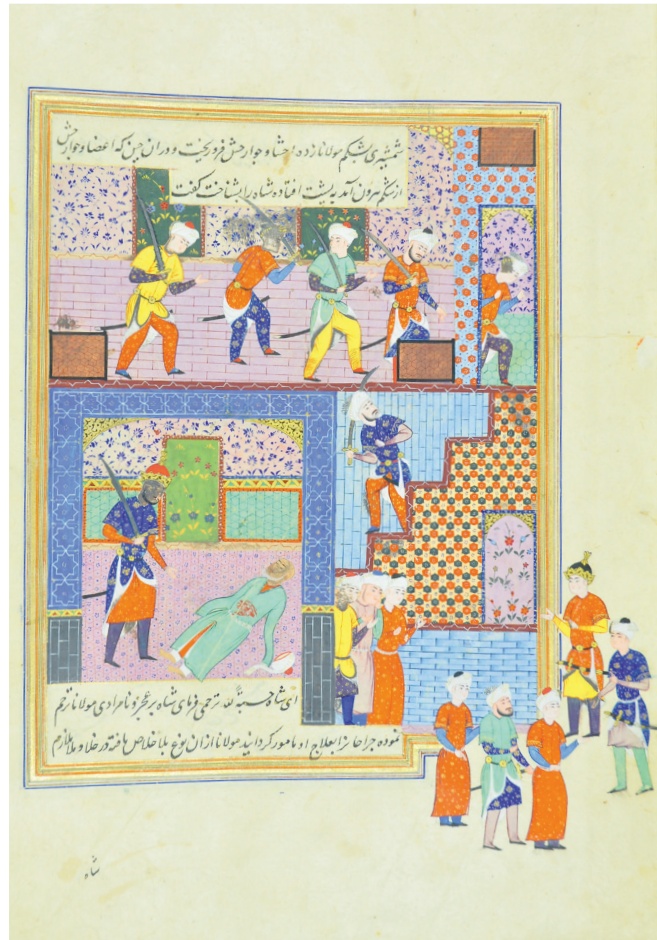 شمشیری بشکم مولانا زده احشا و جوارحش فرو ریخت و در ان حین که اعضا و جوارحش
از شکم بیرون آمد پشت افتاده شاه را بشناخت گفت
ای شاه حسبة لله ترحمی فرمای شاه بر عجز و نامرادی مولانا ترحم
نموده جراحانرا بعلاج او مامور کردانید مولانا ازان نوع بلا خلاص یافته در خلا و ملا ملازم
شاه